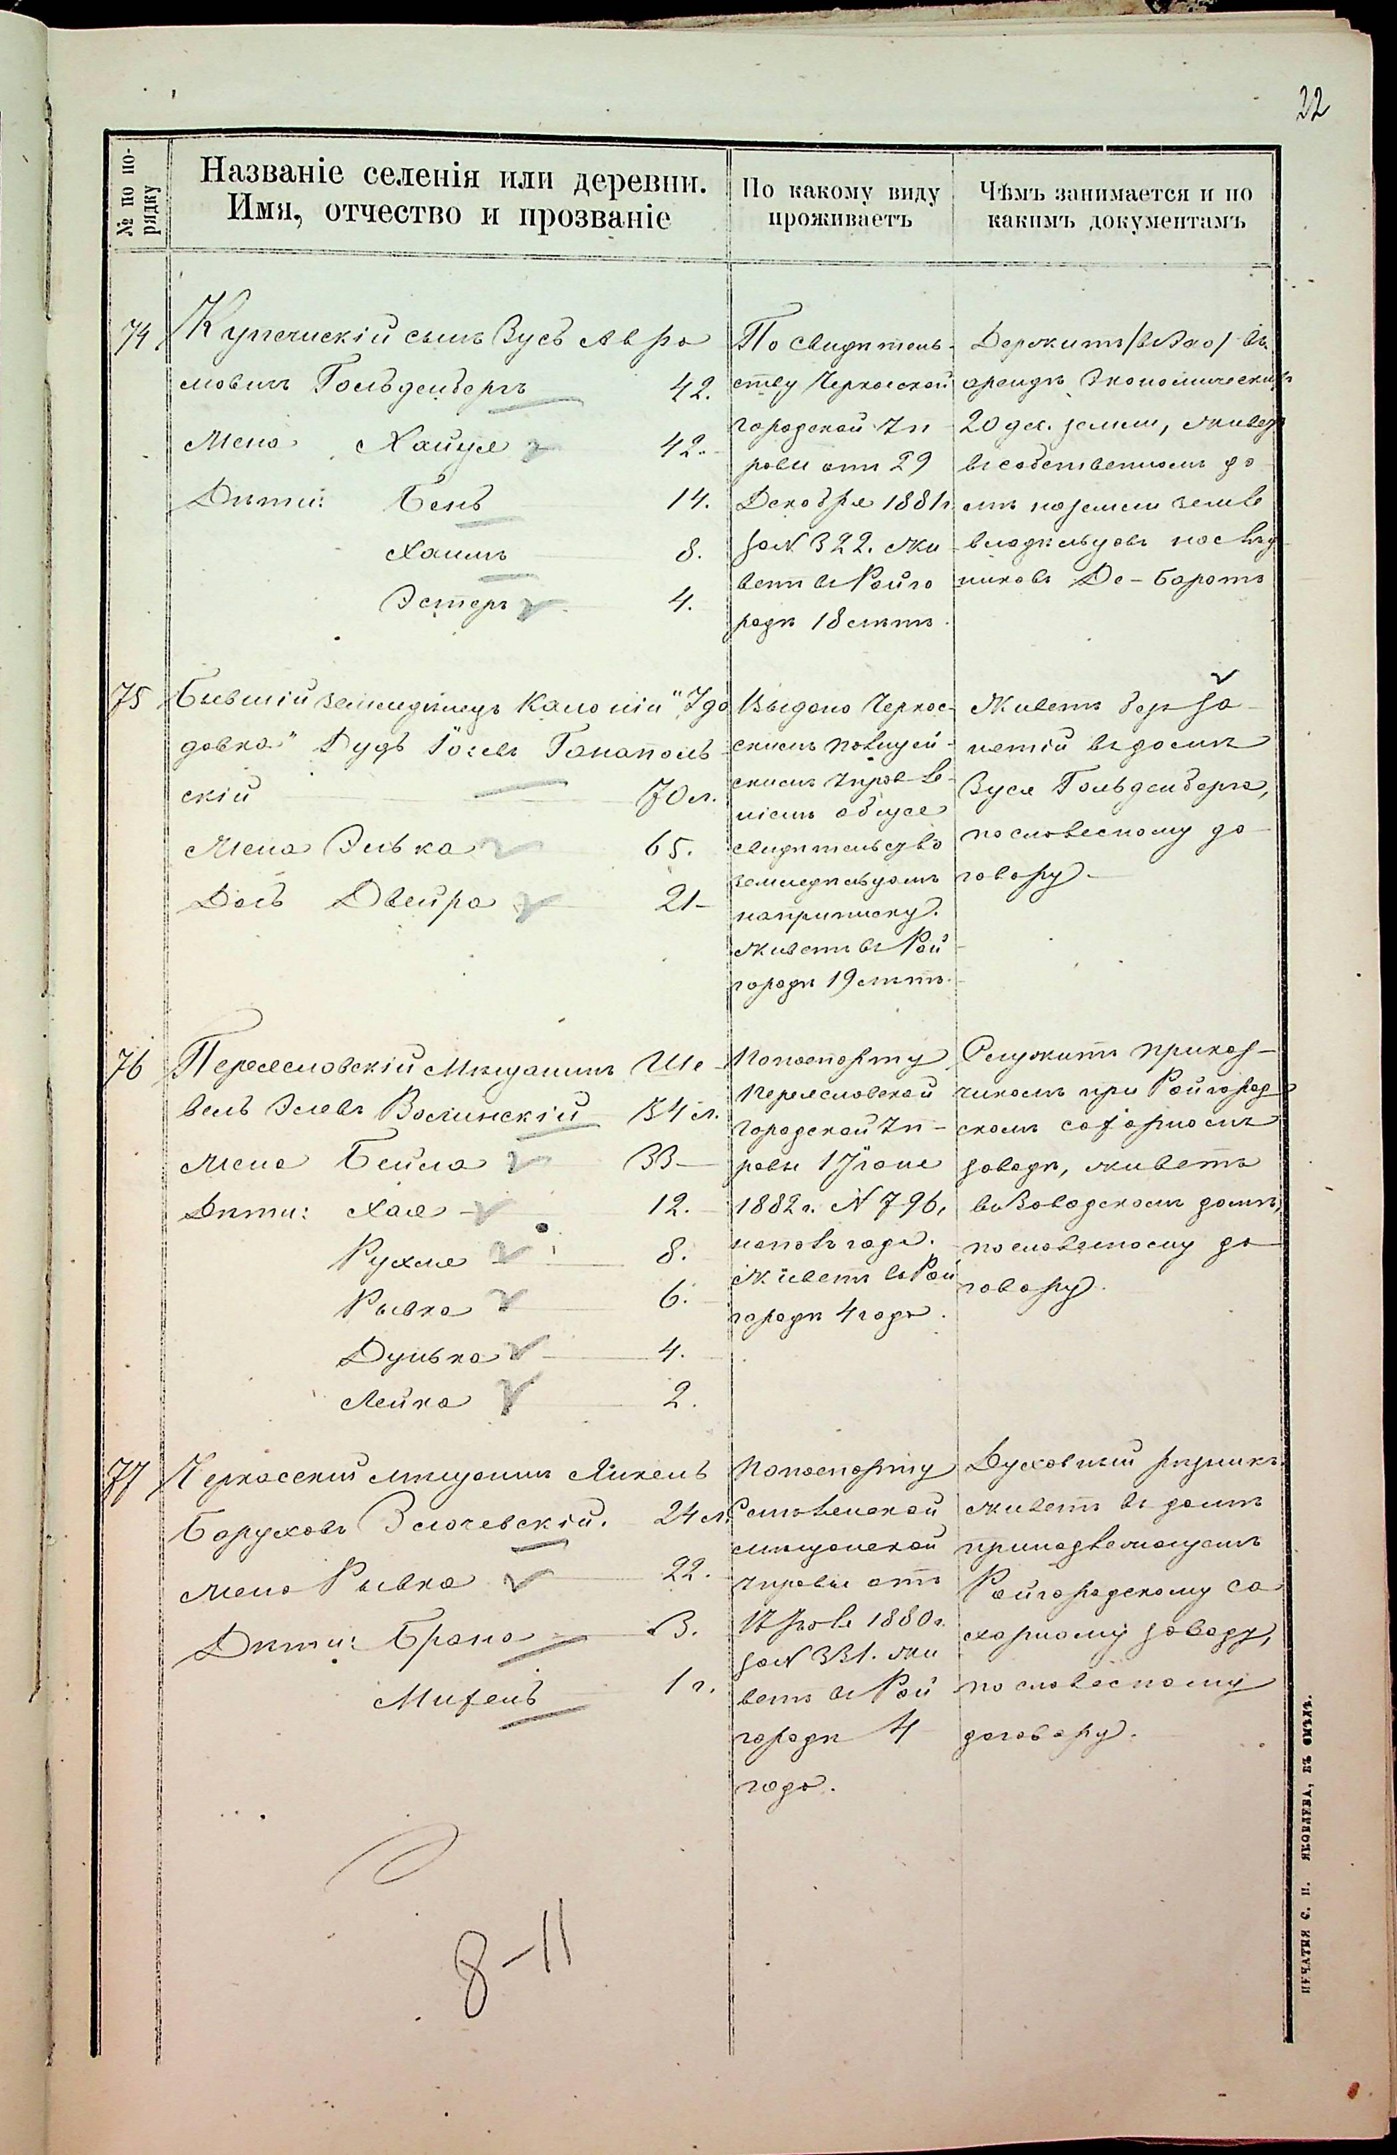 22
№ по по-
рядку
Названіе селенія или деревни.
Имя, отчество и прозваніе
По какому виду
проживаетъ
Чѣмъ занимается и по
какимъ документамъ
74 Купеческій сынъ Зусь Авра
мовичъ Гольденбергъ 42.
Жена Хайця 42.
Дѣти: Бень 14.
Хаимъ 8.
Эстеръ 4.
По свидѣтель-
ству Черкаской
городской Уп
равы отъ 29
Декабря 1881 г
за N 322. жи
ветъ въ Райго
родѣ 18 лѣтъ.
Держитъ въ
арендѣ Экономическихъ
20 дес. земли, живетъ
въ собственномъ до
мѣ на земли земле
владѣльцовъ наслѣд
никовъ Де-Баротъ
75 Бывшій земледѣлецъ Калоніи "Іудо
довка" Дудь Іосевъ Ганаполь-
скій 70 л.
Жена Элька 65.
Дочь Двейра 21
Выдано Черкас-
скимъ полицей-
скимъ управле-
ніемъ общее
свидѣтельство
земледѣльцамъ
на приписку.
живетъ въ Рай
городѣ 19 лѣтъ.
Живетъ безъ за-
нятій въ домѣ
Зуся Гольденберга,
по словесному до-
говору.
76 Переяславскій Мѣщанинъ Ше-
вель Элевъ Волинскій 34 л.
Жена Бейла 33
Дѣти: Хая 12.
Рухля 8.
Рывка 6.
Дунька 4.
Лейка 2.
По паспорту
Переяславской
городской Уп-
равы 17 іюня
1882 г. N 796,
на полъ года.
Живетъ въ Рай
городѣ 4 года.
Служитъ приказ-
чикомъ при Райгород
скомъ сахарномъ
заводѣ, живетъ
въ Заводскомъ домѣ,
по словесному до
говору.
77 Черкасскій мѣщанинъ Янкель
Боруховъ Злочевскій. 24 л.
Жена Рывка 22.
Дѣти: Брана 3.
Михель 1 г.
По паспорту
Смѣлянской
мѣщанской
управы отъ
1880 г.
за N 331. жи
ветъ въ Рай
городѣ 4
года.
Духовный рѣзникъ
живетъ въ домѣ
принадлежащемъ
Райгородскому са
харному заводу,
по словесному
договору.
8-11
ПЕЧАТНЯ С. П. ЯКОВЛЕВА, ВЪ СМѢЛѢ.